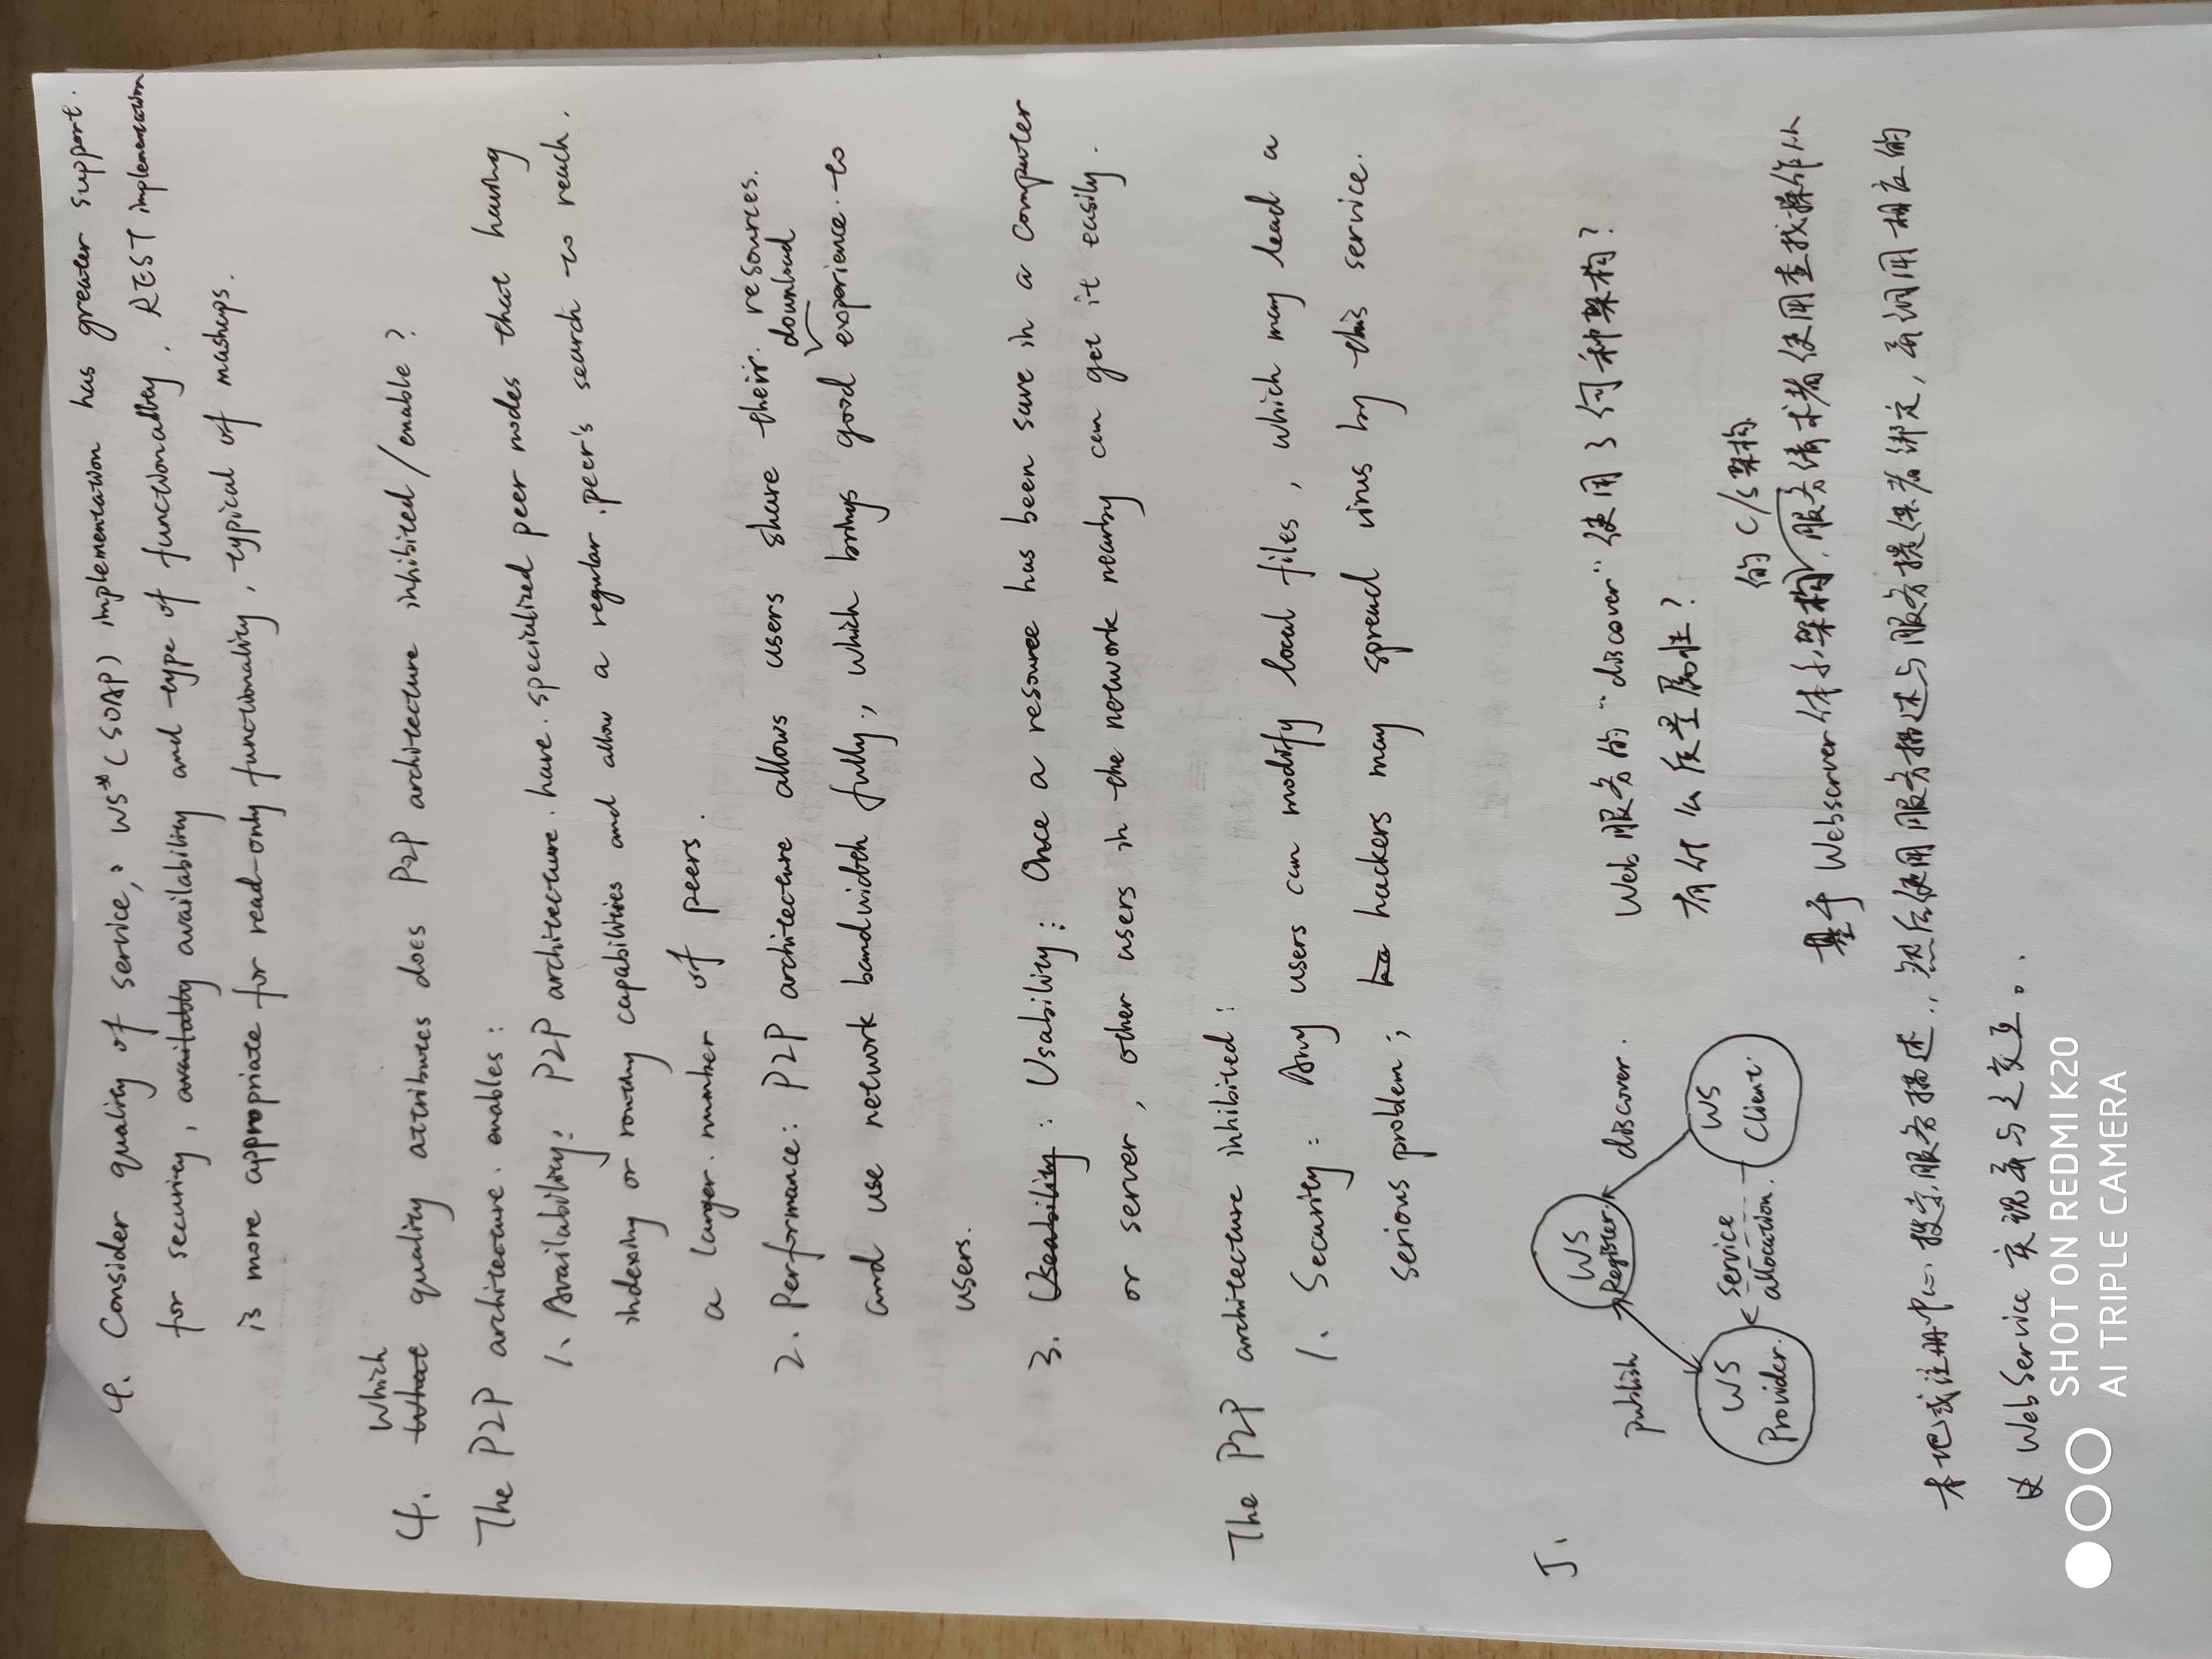 4. Consider quality of service, : WS* (SOAP) implementation has greater support.
for security, availably availability and type of functionality. REST implementation
is more appropriate for read-only functionality, typical of mashups.
Which
4. What quality attributes does P2P architecture inhibited / enable ?
The P2P architecture. enables :
1. Availability: P2P architecture. have. specialized peer nodes that having
indexing or routing capabilities and allow a regular. peer's search to reach.
a larger. number of peers.
2. Performance: P2P architecture allows users share their. resources.
download
and use network bandwidth fully., which brings good experience. to
users.
3. Useability : Usability: Once a resource has been save in a computer
or server, other users in the network nearby can get it easily.
The P2P architecture inhibited :
1. Security : Any users can modify local files, which may lead a
serious problem; ha hackers may spread virus by this service.
5.
WS
Register.
publish
discover.
WS
Provider.
service
allocation.
WS
Client.
Web 服务的 "discover" 使用了何种架构?
有什么质量属性?
的 C/S架构
基于 Webserver 体系架构, 服务请求者使用查找操作从
本地或注册中心搜索服务描述., 然后使用服务描述与服务提供者绑定, 并调用相应的
WebService 实现并与之交互。.
SHOT ON REDMI K20
AI TRIPLE CAMERA